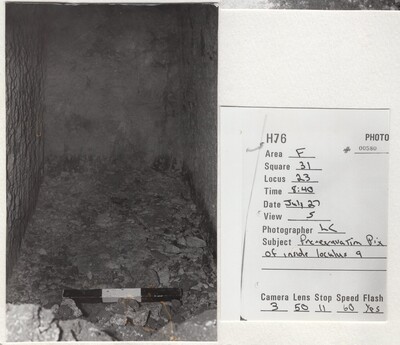 H76 PHOTO
# 00580
Area F
Square 31
Locus 23
Time 8:40
Date July 27
View S
Photographer LC
Subject Preexcavation Pix
of inside loculus 9
Camera Lens Stop Speed Flash
3 50 11 60 Yes